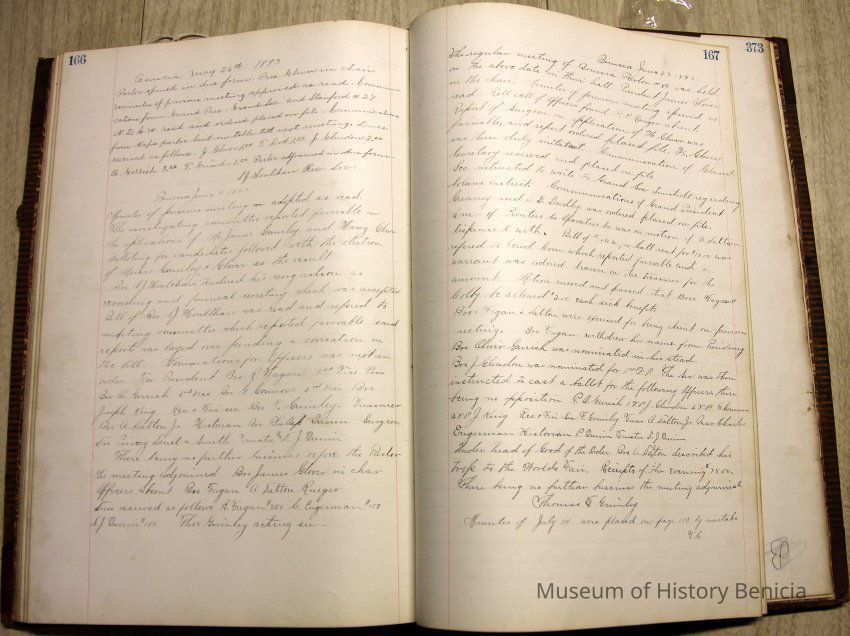 166
Benicia May 26th 1893
Parlor opened in due form. Pres. Glover in chair
minutes of previous meeting approved as read. Communi
cations from Grand Pres. Grand Sec. and Stanford # 27
N. D. G. W. read and ordered placed on file. Communications
from Napa parlor laid on table till next meeting. Dues
received as follows. J. Glover 1.00 J. Glendon 3.00
O. Gerrish 3.00 1.00 Parlor adjourned in due form.
S J Houlihan Rec. Sec.
Benicia June 1893
Minutes of previous meeting adopted as read.
The investigating committee reported favorable on
the aplications of James Gormley and Harry Glover
Balloting for candidates followed with the election
of Messrs Gormley & Glover as the result
Bro. S J Houlihan tendered his resignation as
recording and financial secretary which was accepted
Bill of Bro S J Houlihan was read and refered to
auditing committee which reported favorable said
report was layed over pending a correction in
the bill. Nominations for Officers was next in
order For President Bro R. Fagan 1st Vice Pres
Bro O. Gerrish 2nd Vice Bro G Connors 3rd Vice Bro
Joseph King Rec & Fin sec Bro T. Gormley. Treasurer
Bro A. Dalton Jr. Historian Bro Phillip Dunn Surgeon
Drs Peircey & Smith Trustee S. J Dunn
There being no further business before the Parlor
the meeting adjourned Bro James Glover in chair
Officers Absent Bro Fagan A. Dalton Rueger
Dues received as follows R. Fagan $3.00 C. Engerman $1.50
S J Dunn $1.50 Thos Gormley acting sec
167
373
Benicia June 23 1893
The regular meeting of Benicia Parlor # 89 was held
on the above date in their hall. President James Glover
in the chair. Minutes of previous meeting aproved as
read. Roll call of Officers found Rueger absent
Report of Surgeon on application of H. Glover was
favorable, and report ordered placed file. H. Glover
was then duly initiated. Communication of Grand
Secretary received and placed on file
Sec instructed to write to Grand Sec regarding
Communications of Grand President
and D. Dudley was ordered placed on file.
of Trustees was on motion of A. Dalton
dispensed with. Bill of hall rent for was
refered to Com which reported favorable and a
warrant was ordered drawn on the Treasurer for the
amount. Motion moved and passed that Bros Fagan &
Colby be allowed $3.00 each sick benefits
Bros Fagan & Dalton were excused for being absent on previous
meeting. Bro Fagan withdrew his name from Presidency
Bro Oliver Gerrish was nominated in his stead.
Bro J. Glendon was nominated for 1st V.P. The sec was then
instructed to cast a ballot for the following Officers there
being no opposition. P. O. Gerrish 1 V.P. J. Glendon 2 V.P. G Connors
3d V.P. J. King Rec & Fin Sec T. Gormley Treas A. Dalton Jr Charles
Engerman Historian P. Dunn Trustee S J Dunn
Under head of Good of the Order Bro A. Dalton described his
trip to the Worlds Fair. Receipts of the evening
There being no further business the meeting adjourned
Thomas F. Gormley
Minutes of July 14 were placed on page 170 by mistake
T. G.
Museum of History Benicia